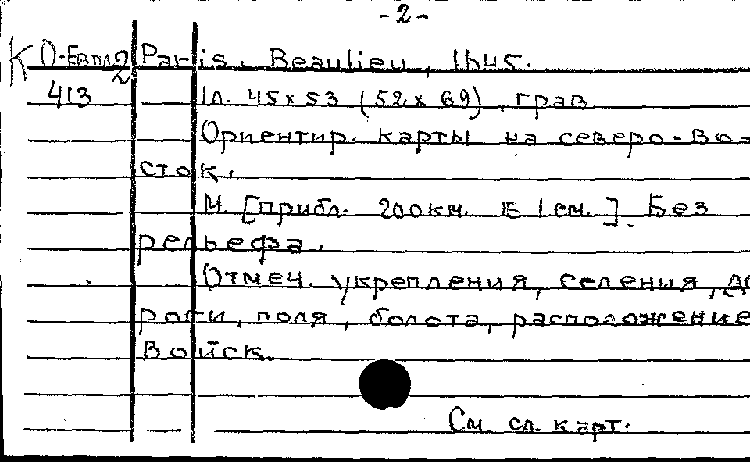 -2-
К О-Евпл2 Paris. Beaulieu, 1645.
413 1л. 45х53 (52х69), грав
Ориентир. карты на северо-во-
сток.
М. [прибл. 200км. в 1см.]. Без
рельефа.
Отмеч. укрепления, селения, до
роги, поля, болота, расположение
войск.
См. сл. карт.